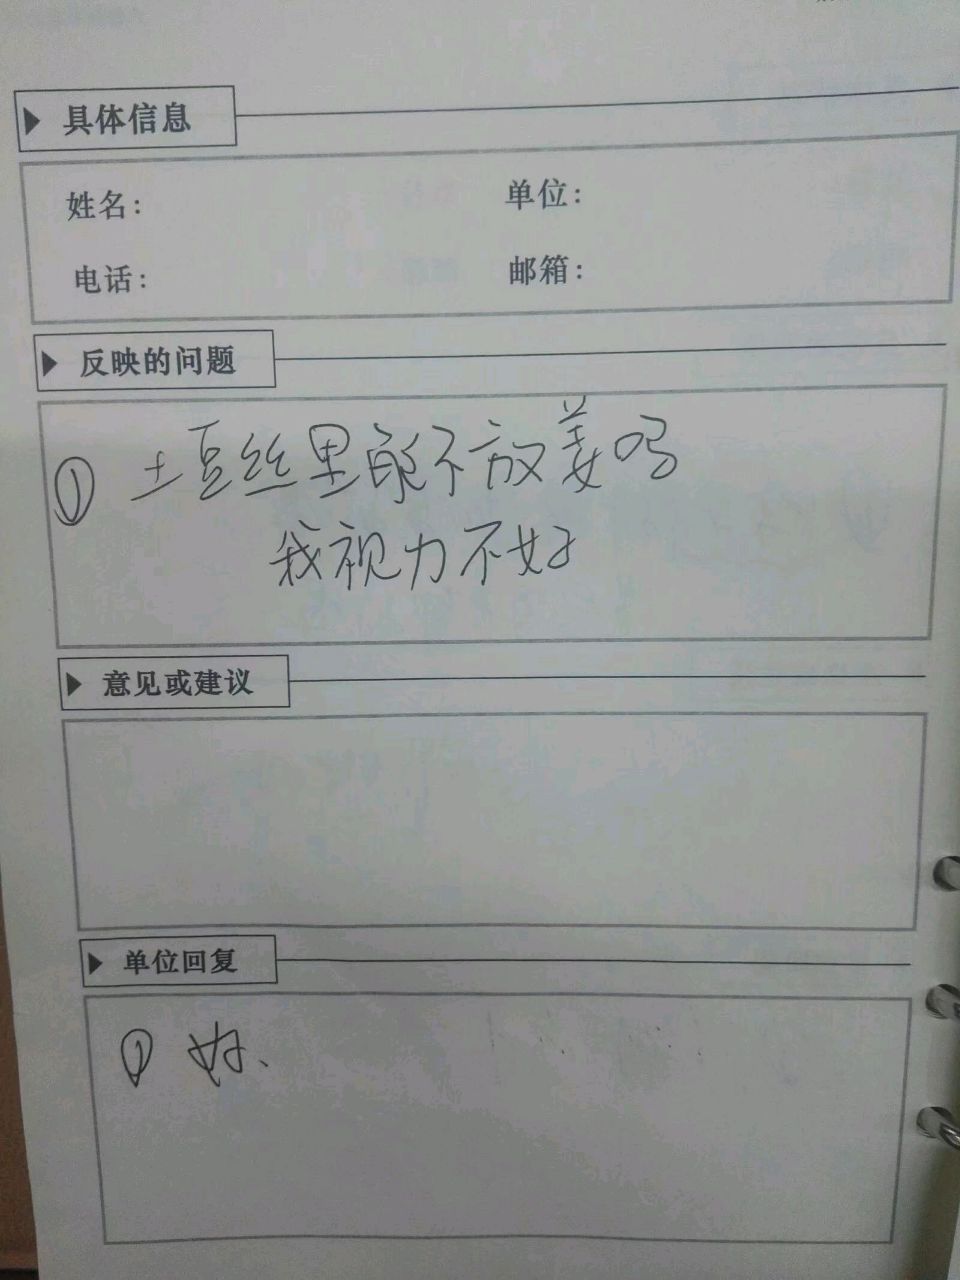 具体信息
姓名：
单位：
电话：
邮箱：
反映的问题
① 土豆丝里能不放姜吗
我视力不好
意见或建议
单位回复
① 好、